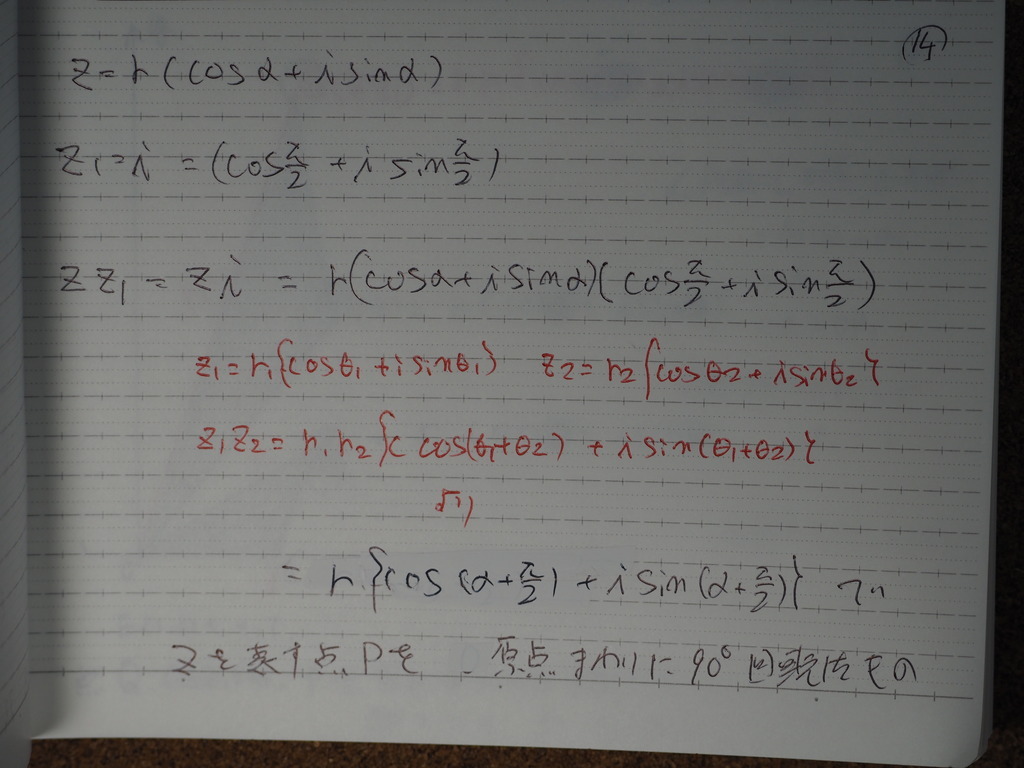 (14)
z=r(cosα+i sinα)
z₁=i =(cos π/2 + i sin π/2)
z z₁ = z i = r(cosα+i sinα)(cos π/2 + i sin π/2)
z₁=r₁{cosθ₁+i sinθ₁} z₂=r₂{cosθ₂+i sinθ₂}
z₁z₂=r₁r₂{cos(θ₁+θ₂)+i sin(θ₁+θ₂)}
より
=r{cos(α+π/2)+i sin(α+π/2)}
zを表す点Pを 原点まわりに90°回転したもの